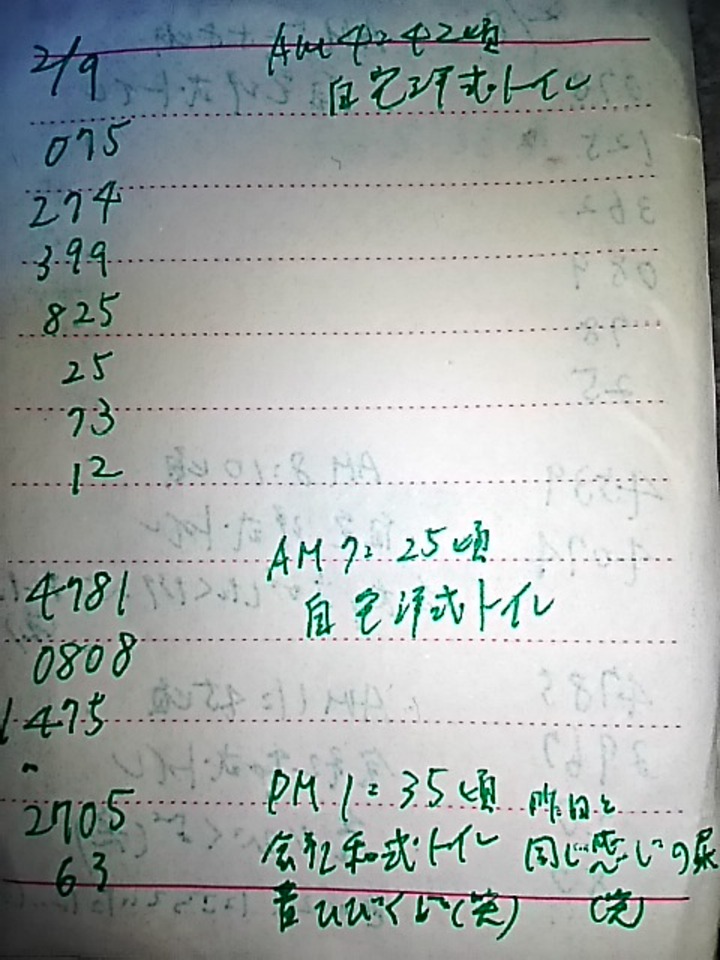 2/9 AM 4:42頃
自宅洋式トイレ
075
274
399
825
25
73
12
AM 7:25頃
4781 自宅洋式トイレ
0808
1475
2705 PM 1:35頃 昨日と
会社和式トイレ 同じ感じの尿
63
音ひびくど(笑) (笑)